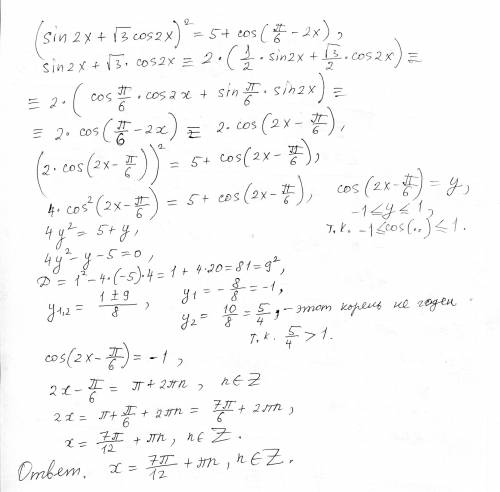 (sin2x + √3 cos2x)² = 5 + cos(π/6 - 2x),
sin2x + √3 · cos2x ≡ 2 · (1/2 · sin2x + √3/2 · cos2x) ≡
≡ 2 · (cos π/6 · cos2x + sin π/6 · sin2x) ≡
≡ 2 · cos(π/6 - 2x) ≡ 2 · cos(2x - π/6),
(2 · cos(2x - π/6))² = 5 + cos(2x - π/6),
4 · cos²(2x - π/6) = 5 + cos(2x - π/6), cos(2x - π/6) = y,
-1 ≤ y ≤ 1,
т.к. -1 ≤ cos(..) ≤ 1.
4y² = 5 + y,
4y² - y - 5 = 0,
D = 1² - 4·(-5)·4 = 1 + 4·20 = 81 = 9²,
y₁,₂ = (1 ± 9)/8, y₁ = -8/8 = -1,
y₂ = 10/8 = 5/4, - этот корень не годен
т.к. 5/4 > 1.
cos(2x - π/6) = -1,
2x - π/6 = π + 2πn, n ∈ Z
2x = π + π/6 + 2πn = 7π/6 + 2πn,
x = 7π/12 + πn, n ∈ Z.
Ответ. x = 7π/12 + πn, n ∈ Z.